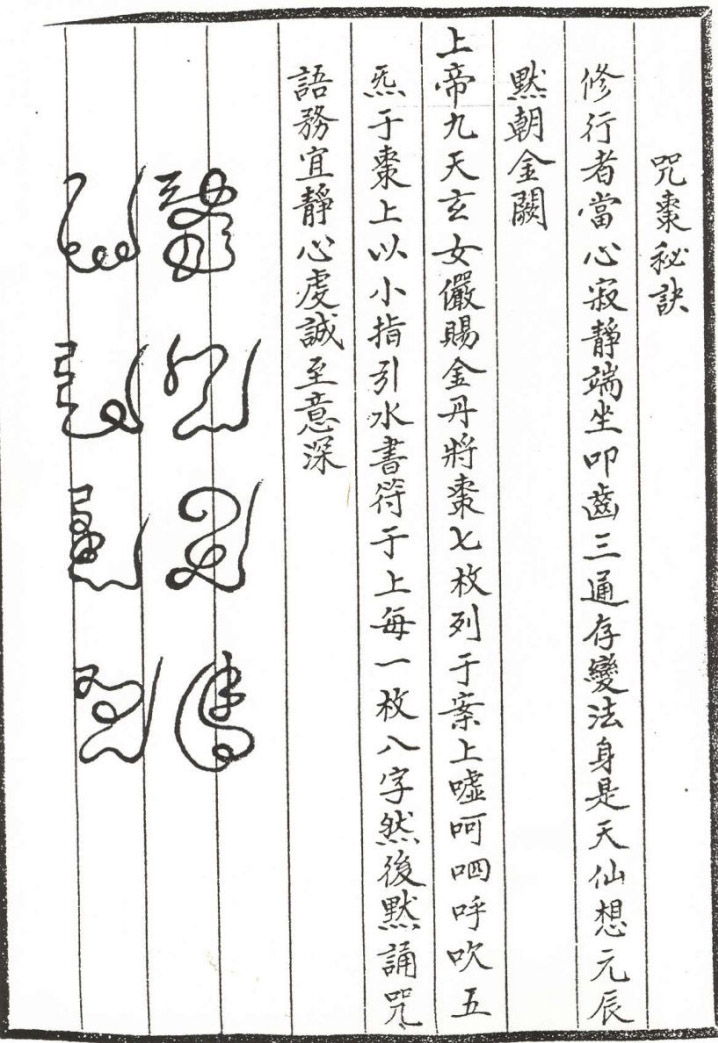 咒棗秘訣
修行者當心寂靜端坐叩齒三通存變法身是天仙想元辰
默朝金闕
上帝九天玄女儼賜金丹將棗七枚列于案上噓呵呬呼吹五
炁于棗上以小指引水書符于上每一枚八字然後默誦咒
語務宜靜心虔誠至意深